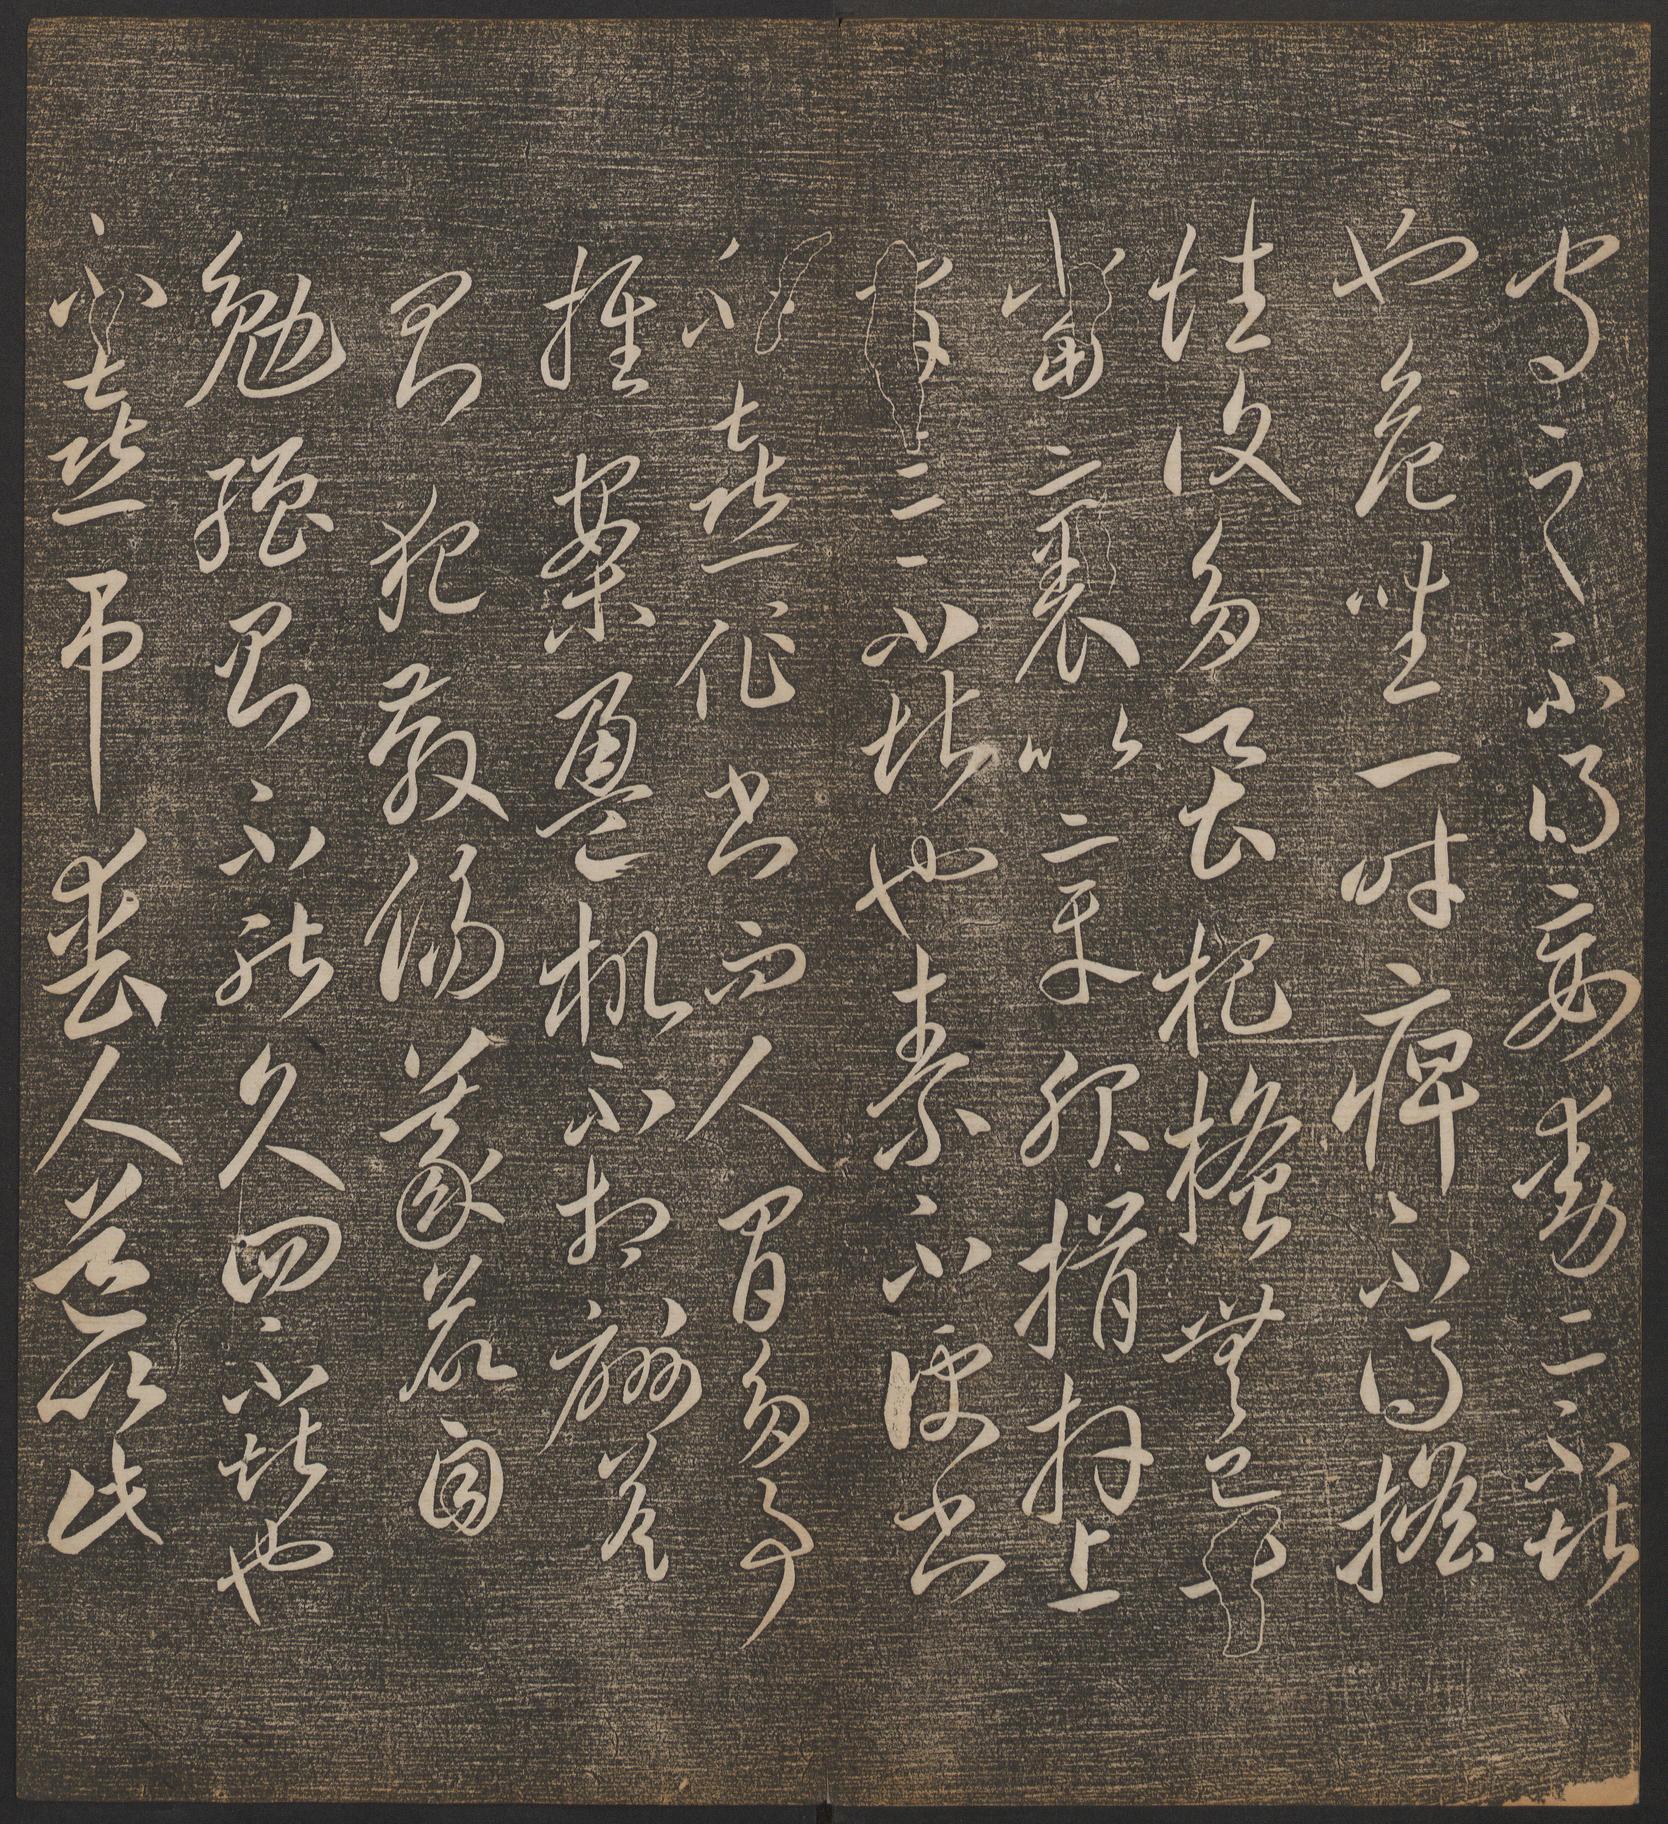 守之不得妄動二不堪
也危坐一時痺不得搖
性復多虱把搔無已而
當裹以章服揖拜上
官三不堪也素不便書
不喜作書而人間多事
推案盈机不相酬答
則犯教傷義欲自
勉強則不能久四不堪也
不喜弔喪人道以此